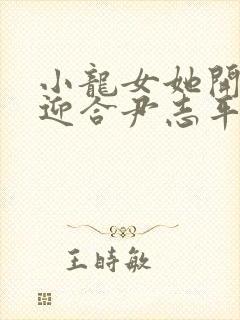 小龍女她開
迎合尹志平
王時敏